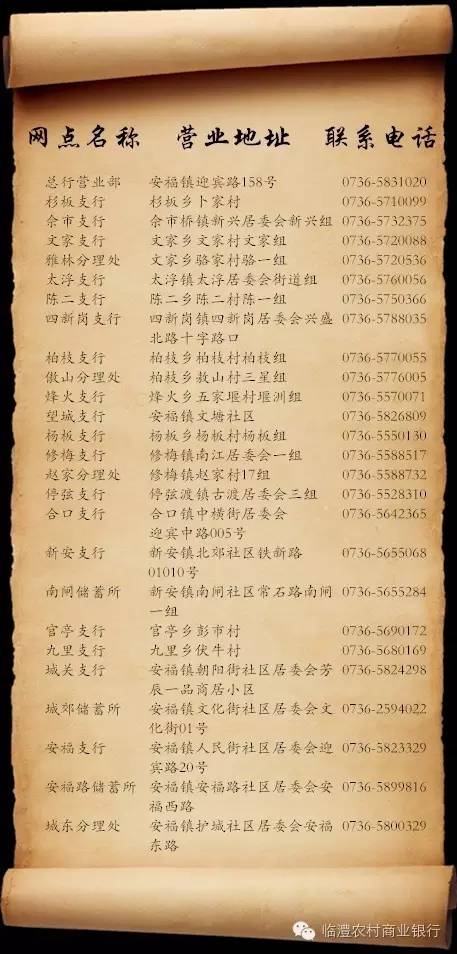 网点名称 营业地址 联系电话
总行营业部 安福镇迎宾路158号 0736-5831020
杉板支行 杉板乡卜家村 0736-5710099
佘市支行 佘市桥镇新兴居委会新兴组 0736-5732375
文家支行 文家乡文家村文家组 0736-5720088
雅林分理处 文家乡骆家村骆一组 0736-5720536
太浮支行 太浮镇太浮居委会街道组 0736-5760056
陈二支行 陈二乡陈二村陈一组 0736-5750366
四新岗支行 四新岗镇四新岗居委会兴盛 0736-5788035
北路十字路口
柏枝支行 柏枝乡柏枝村柏枝组 0736-5770055
傲山分理处 柏枝乡敖山村三星组 0736-5776005
烽火支行 烽火乡五家堰村堰洲组 0736-5570071
望城支行 安福镇文塘社区 0736-5826809
杨板支行 杨板乡杨板村杨板组 0736-5550130
修梅支行 修梅镇南江居委会一组 0736-5588517
赵家分理处 修梅镇赵家村17组 0736-5588732
停弦支行 停弦渡镇古渡居委会三组 0736-5528310
合口支行 合口镇中横街居委会 0736-5642365
迎宾中路005号
新安支行 新安镇北郊社区铁新路 0736-5655068
01010号
南闸储蓄所 新安镇南闸社区常石路南闸 0736-5655284
一组
官亭支行 官亭乡彭市村 0736-5690172
九里支行 九里乡伏牛村 0736-5680169
城关支行 安福镇朝阳街社区居委会芳 0736-5824298
辰一品商居小区
城郊储蓄所 安福镇文化街社区居委会文 0736-2594022
化街01号
安福支行 安福镇人民街社区居委会迎 0736-5823329
宾路20号
安福路储蓄所 安福镇安福路社区居委会安 0736-5899816
福西路
城东分理处 安福镇护城社区居委会安福 0736-5800329
东路
临澧农村商业银行